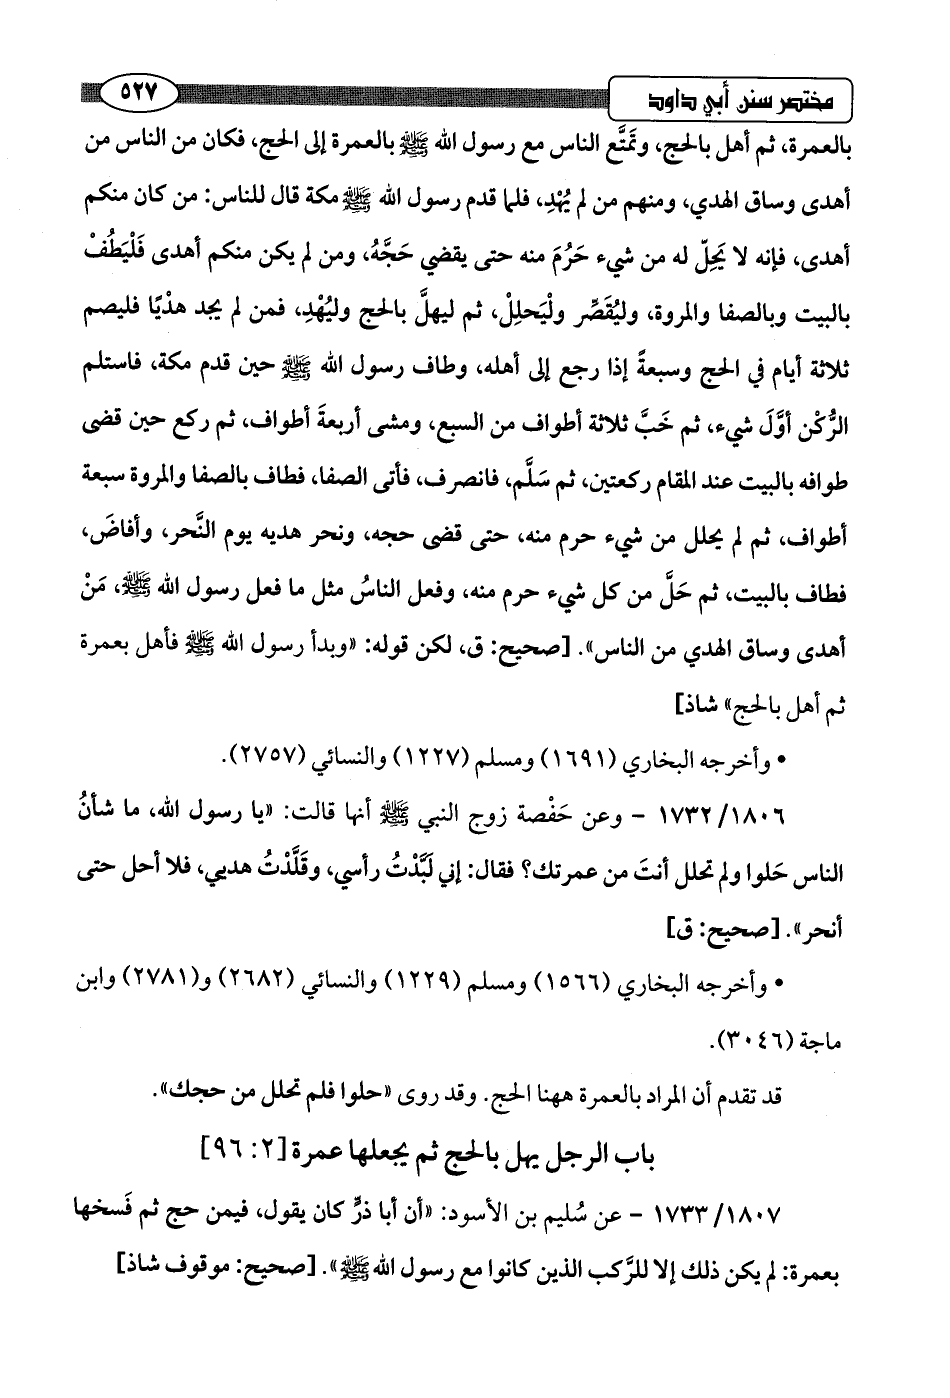 مختصر سنن أبي داود
٥٢٧
بالعمرة، ثم أهل بالحج، وتمتَّع الناس مع رسول الله ﷺ بالعمرة إلى الحج، فكان من الناس من
أهدى وساق الهدي، ومنهم من لم يُهْدِ، فلما قدم رسول الله ﷺ مكة قال للناس: من كان منكم
أهدى، فإنه لا يَحِلّ له من شيء حَرُمَ منه حتى يقضي حَجَّهُ، ومن لم يكن منكم أهدى فَلْيَطُفْ
بالبيت وبالصفا والمروة، وليُقَصِّر ولْيَحلِلْ، ثم ليهلَّ بالحج وليُهْدِ، فمن لم يجد هدْيًا فليصم
ثلاثة أيام في الحج وسبعةً إذا رجع إلى أهله، وطاف رسول الله ﷺ حين قدم مكة، فاستلم
الرُّكْن أوَّلَ شيء، ثم خَبَّ ثلاثة أطواف من السبع، ومشى أربعةَ أطواف، ثم ركع حين قضى
طوافه بالبيت عند المقام ركعتين، ثم سَلَّم، فانصرف، فأتى الصفا، فطاف بالصفا والمروة سبعة
أطواف، ثم لم يحلل من شيء حرم منه، حتى قضى حجه، ونحر هديه يوم النَّحر، وأفاضَ،
فطاف بالبيت، ثم حَلَّ من كل شيء حرم منه، وفعل الناسُ مثل ما فعل رسول الله ﷺ، مَنْ
أهدى وساق الهدي من الناس». [صحيح: ق، لكن قوله: «وبدأ رسول الله ﷺ فأهل بعمرة
ثم أهل بالحج» شاذ]
• وأخرجه البخاري (١٦٩١) ومسلم (١٢٢٧) والنسائي (٢٧٥٧).
١٧٣٢/١٨٠٦ - وعن حَفْصة زوج النبي ﷺ أنها قالت: «يا رسول الله، ما شأنُ
الناس حَلوا ولم تحلل أنتَ من عمرتك؟ فقال: إني لَبَّدْتُ رأسي، وقَلَّدْتُ هديي، فلا أحل حتى
أنحر». [صحيح: ق]
• وأخرجه البخاري (١٥٦٦) ومسلم (١٢٢٩) والنسائي (٢٦٨٢) و(٢٧٨١) وابن
ماجة (٣٠٤٦).
قد تقدم أن المراد بالعمرة ههنا الحج. وقد روى «حلوا فلم تحلل من حجك».
باب الرجل يهل بالحج ثم يجعلها عمرة [٢: ٩٦]
١٧٣٣/١٨٠٧ - عن سُليم بن الأسود: «أن أبا ذرٍّ كان يقول، فيمن حج ثم فَسخها
بعمرة: لم يكن ذلك إلا للرَّكب الذين كانوا مع رسول الله ﷺ». [صحيح: موقوف شاذ]